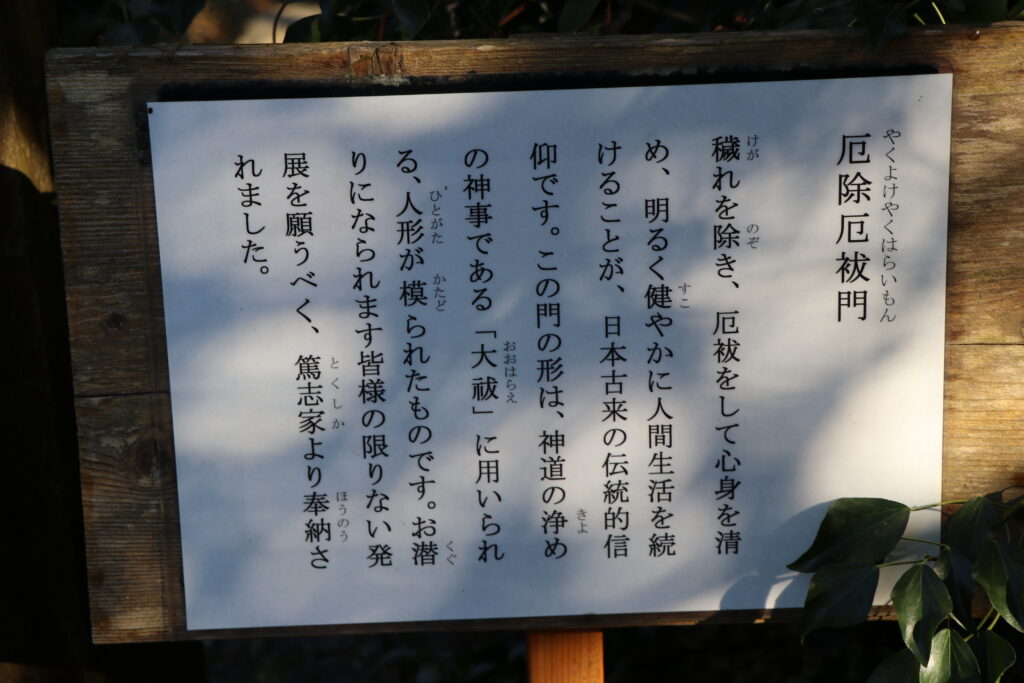 やくよけやくはらいもん
厄除厄祓門
けが のぞ
穢れを除き、厄祓をして心身を清
すこ
め、明るく健やかに人間生活を続
けることが、日本古来の伝統的信
きよ
仰です。この門の形は、神道の浄め
おおはらえ
の神事である「大祓」に用いられ
ひとがた かたど
る、人形が模られたものです。お潜
くぐ
りになられます皆様の限りない発
とくしか ほうのう
展を願うべく、篤志家より奉納さ
れました。